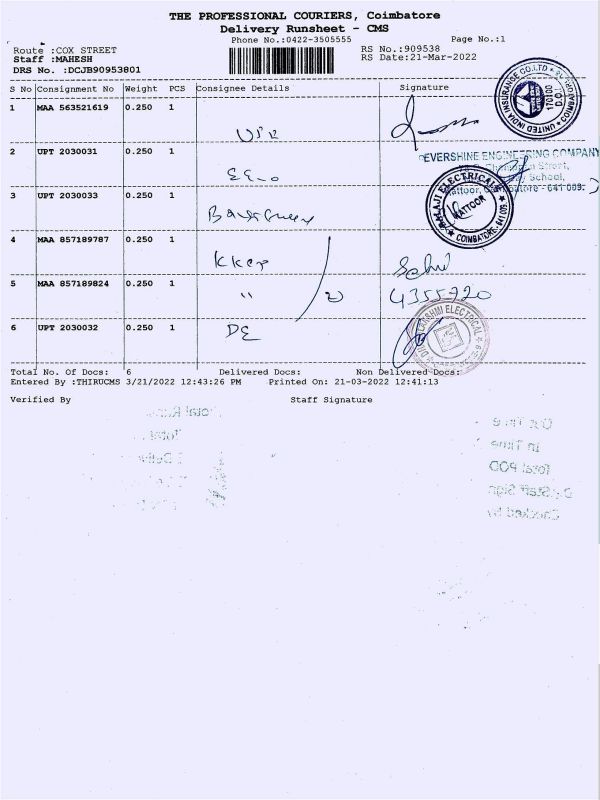 THE PROFESSIONAL COURIERS, Coimbatore
Delivery Runsheet - CMS
Phone No.:0422-3505555 Page No.:1
Route :COX STREET RS No.:909538
Staff :MAHESH RS Date:21-Mar-2022
DRS No. :DCJB90953801
S No Consignment No Weight PCS Consignee Details Signature
UNITED INDIA INSURANCE CO.LTD COIMBATORE D.O. 170100
1 MAA 563521619 0.250 1
2 UPT 2030031 0.250 1
EVERSHINE ENGINEERING COMPANY
Street,
School,
Kattoor, Coimbatore - 641 009.
BALAJI ELECTRICAL KATTOOR COIMBATORE-641 009.
3 UPT 2030033 0.250 1
4 MAA 857189787 0.250 1
5 MAA 857189824 0.250 1 " 4355720
6 UPT 2030032 0.250 1 DE
LAKSHMI ELECTRICAL
Total No. Of Docs: 6 Delivered Docs: Non Delivered Docs:
Entered By :THIRUCMS 3/21/2022 12:43:26 PM Printed On: 21-03-2022 12:41:13
Verified By Staff Signature
Out Time
In Time
Total POD
Staff Sign
Checked by